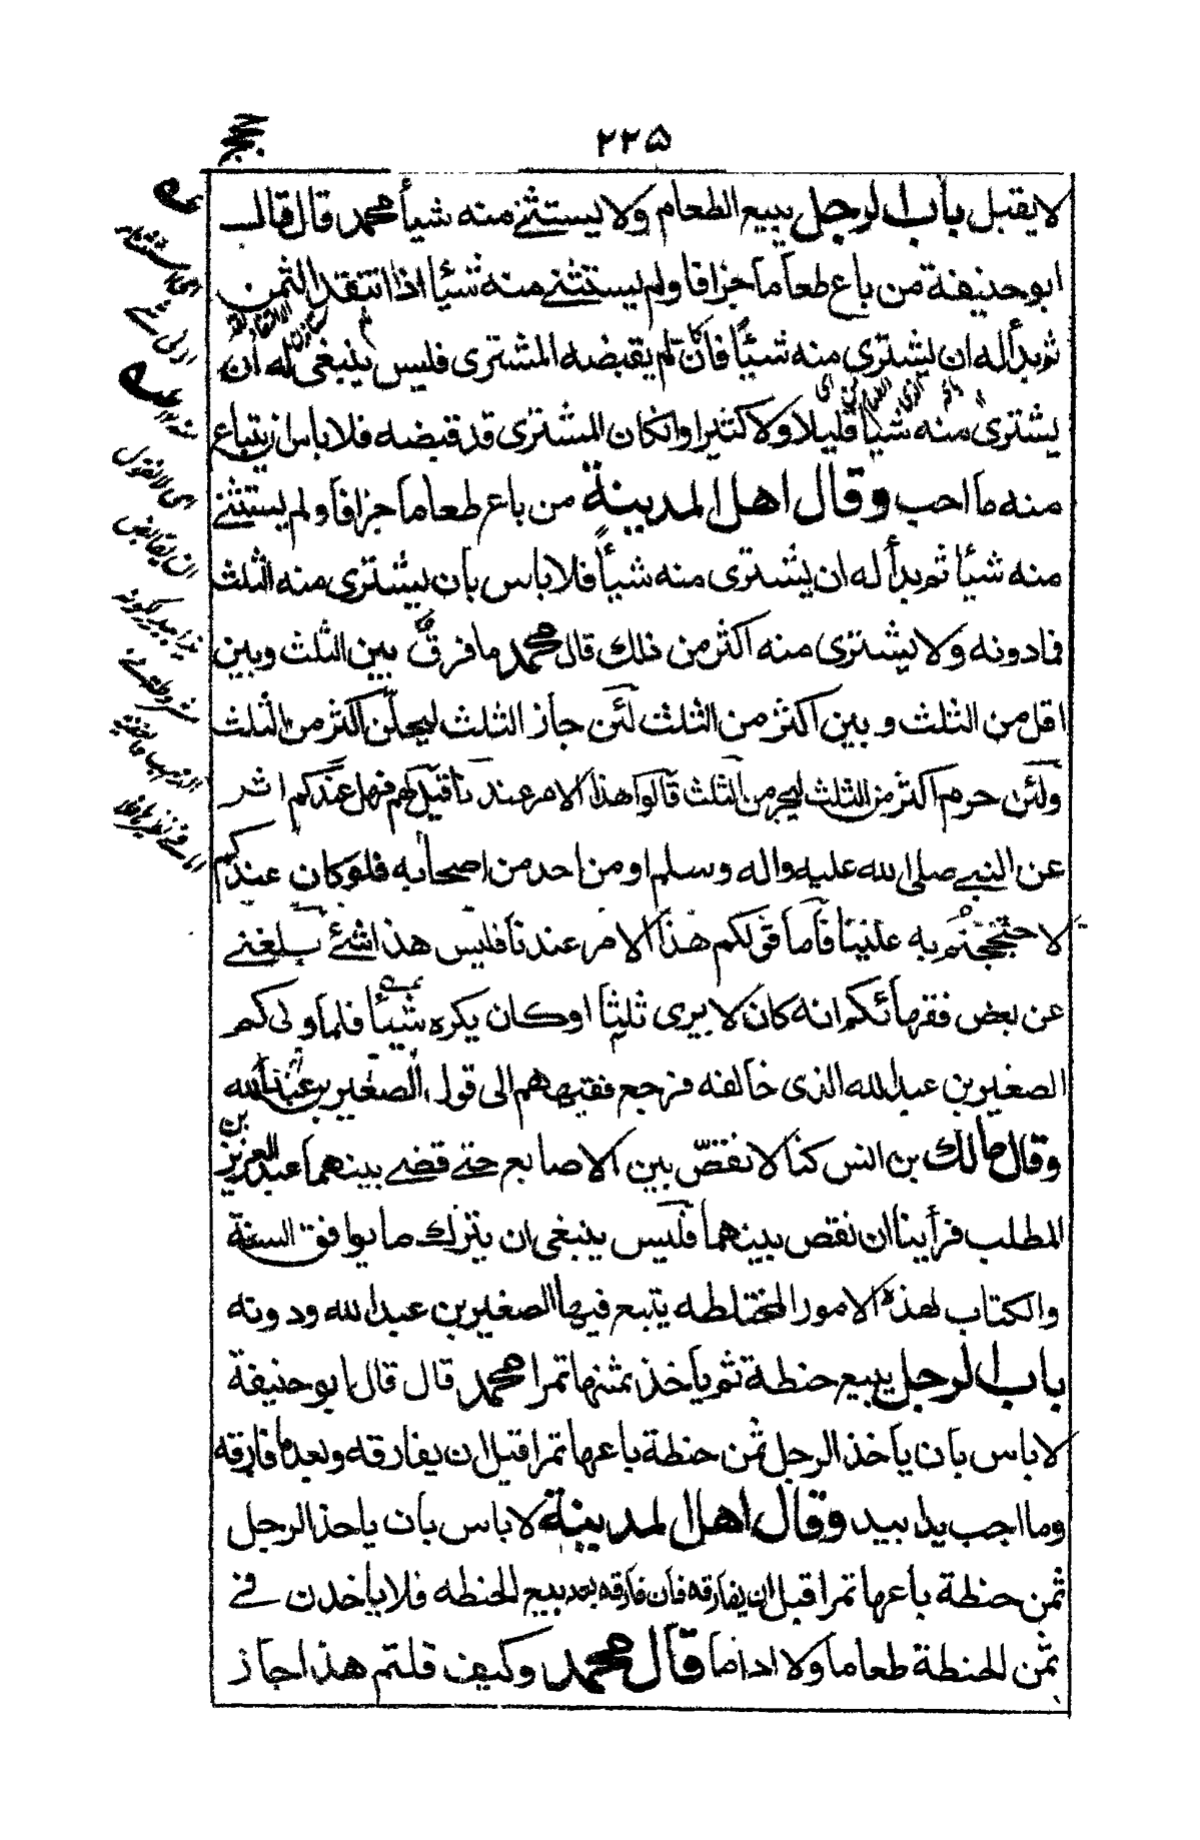 ٢٢۵
حجج
لا يقبل باب الرجل يبيع الطعام ولا يستثنے منه شيأ محمد قال قال
ابو حنيفة من باع طعاما جزافا ولم يستثنے منه شيئا اذا انتقد الثمن
ثم بدأ له ان يشترى منه شيئا فان لم يقبضه المشترى فليس ينبغى له ان
يشترى منه شيأ قليلا ولا كثيرا وانكان المشترى قد قبضه فلا باس ان يبتاع
منه ما احب وقال اهل المدينة من باع طعاما جزافا ولم يستثنے
منه شيئا ثم بدأ له ان يشترى منه شيأ فلا باس بان يشترى منه الثلث
فمادونه ولا يشترى منه اكثر من ذلك قال محمد ما فرق بين الثلث وبين
اقل من الثلث و بين اكثر من الثلث لئن جاز الثلث ليحلن اكثر من الثلث
ولئن حرم اكثر من الثلث ليحرمن الثلث قالوا هذا الامر عندنا قيل لهم فهل عندكم اثر
عن النبے صلى الله عليه واله وسلم او من احد من اصحابه فلو كان عندكم
لاحتججتم به علينا فاما قولكم هذا الامر عندنا فليس هذا شئ بلغنے
عن بعض فقهائكم انه كان لا يرى ثلثا اوكان يكره شيئا فلما ولى كم
الصغير بن عبد الله الذى خالفه فرجع فقيههم الى قول الصغير بن عبد الله
وقال مالك بن انس كنا لا نقصّ بين الاصابع حتے قضے بينهما عبد العزيز بن
المطلب فرأينا ان نقص بينهما فليس ينبغى ان يترك ما يوافق السنة
والكتاب لهذه الامور المختلطه يتبع فيها الصغير بن عبد الله ودونه
باب الرجل يبيع حنطة ثم ياخذ بثمنها تمرا محمد قال قال ابو حنيفة
لا باس بان ياخذ الرجل ثمن حنطة باعها تمرا قبل ان يفارقه وبعد ما فارقه
وما احب يدا بيد وقال اهل المدينة لا باس بان ياخذ الرجل
ثمن حنطة باعها تمرا قبل ان يفارقه فان فارقه بعد بيع الحنطه فلا ياخذن فے
ثمن الحنطة طعاما ولا اداما قال محمد وكيف قلتم هذا جاز